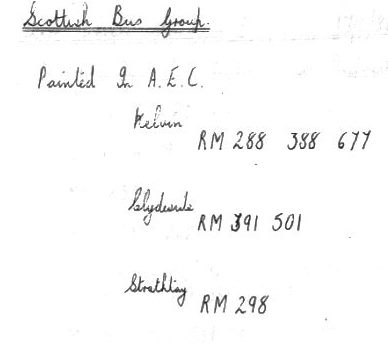 Scottish Bus Group.
Painted In A.E.C.
Kelvin
RM 288 388 677
Clydeside
RM 391 501
Strathtay
RM 298